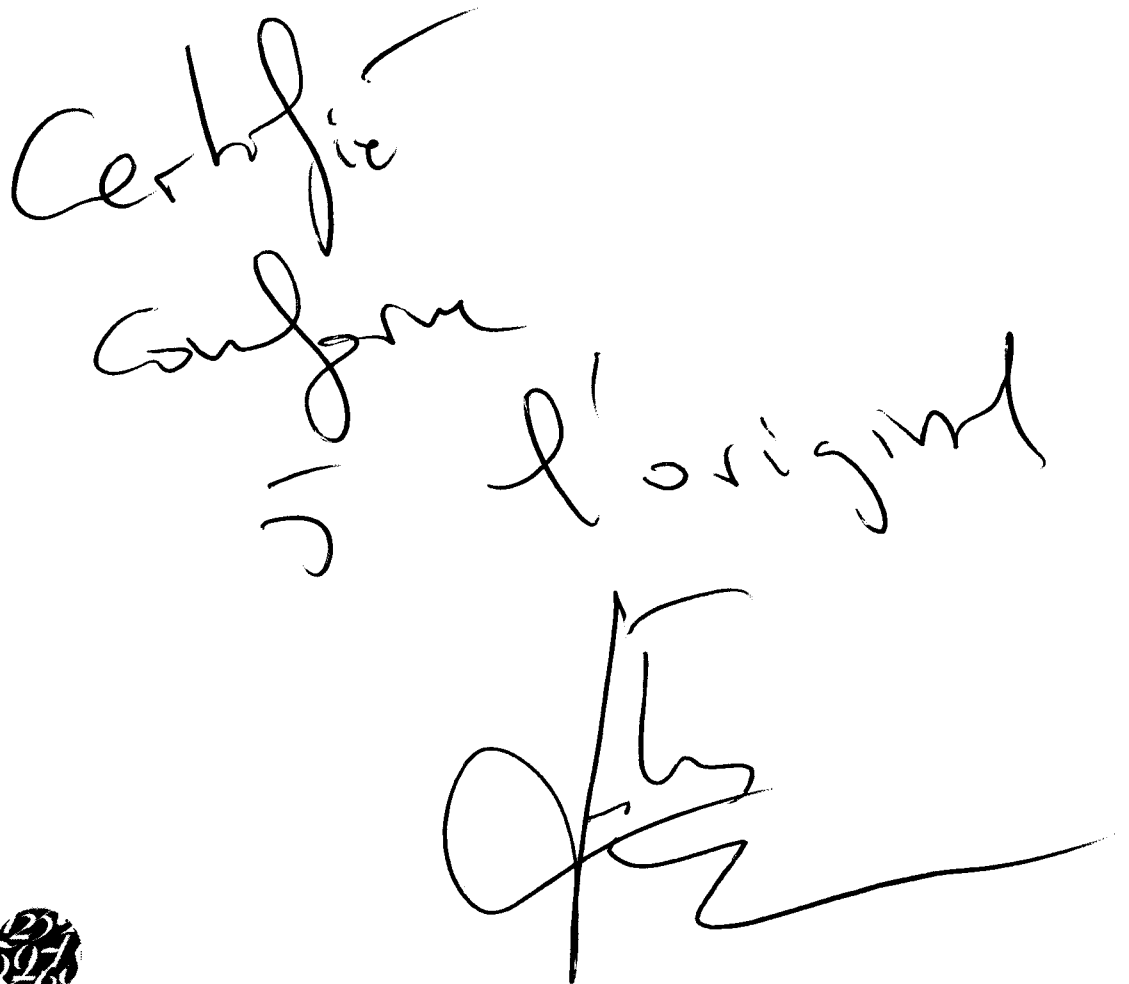 Certifié
conforme
à l'original